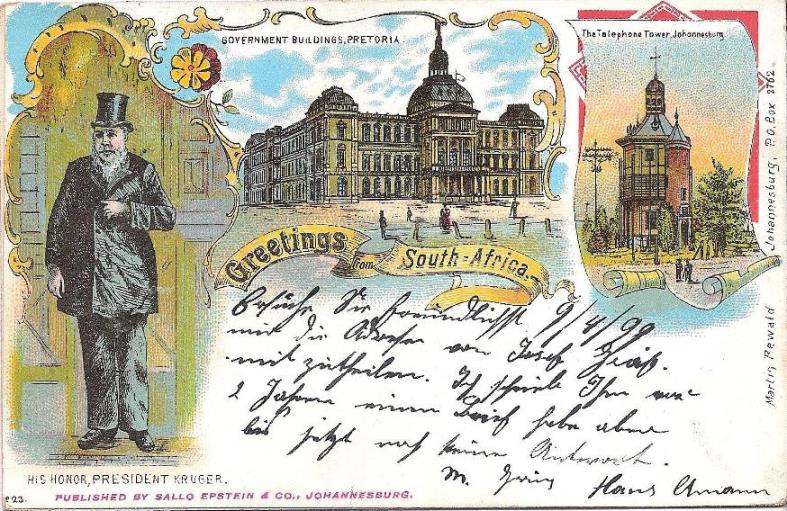 GOVERNMENT BUILDINGS, PRETORIA
The Telephone Tower, Johannesburg.
Greetings from South-Africa.
Ersuche Sie freundlichst 9/4/99
mir die Adresse von Josef
mit zutheilen. Ich schrieb Ihm vor
2 Jahren einen Brief habe aber
bis jetzt noch keine Antwort.
M. Hans Amann
HIS HONOR, PRESIDENT KRUGER.
PUBLISHED BY SALLO EPSTEIN & CO., JOHANNESBURG.
Martin Rewald Johannesburg, P.O. Box 2762